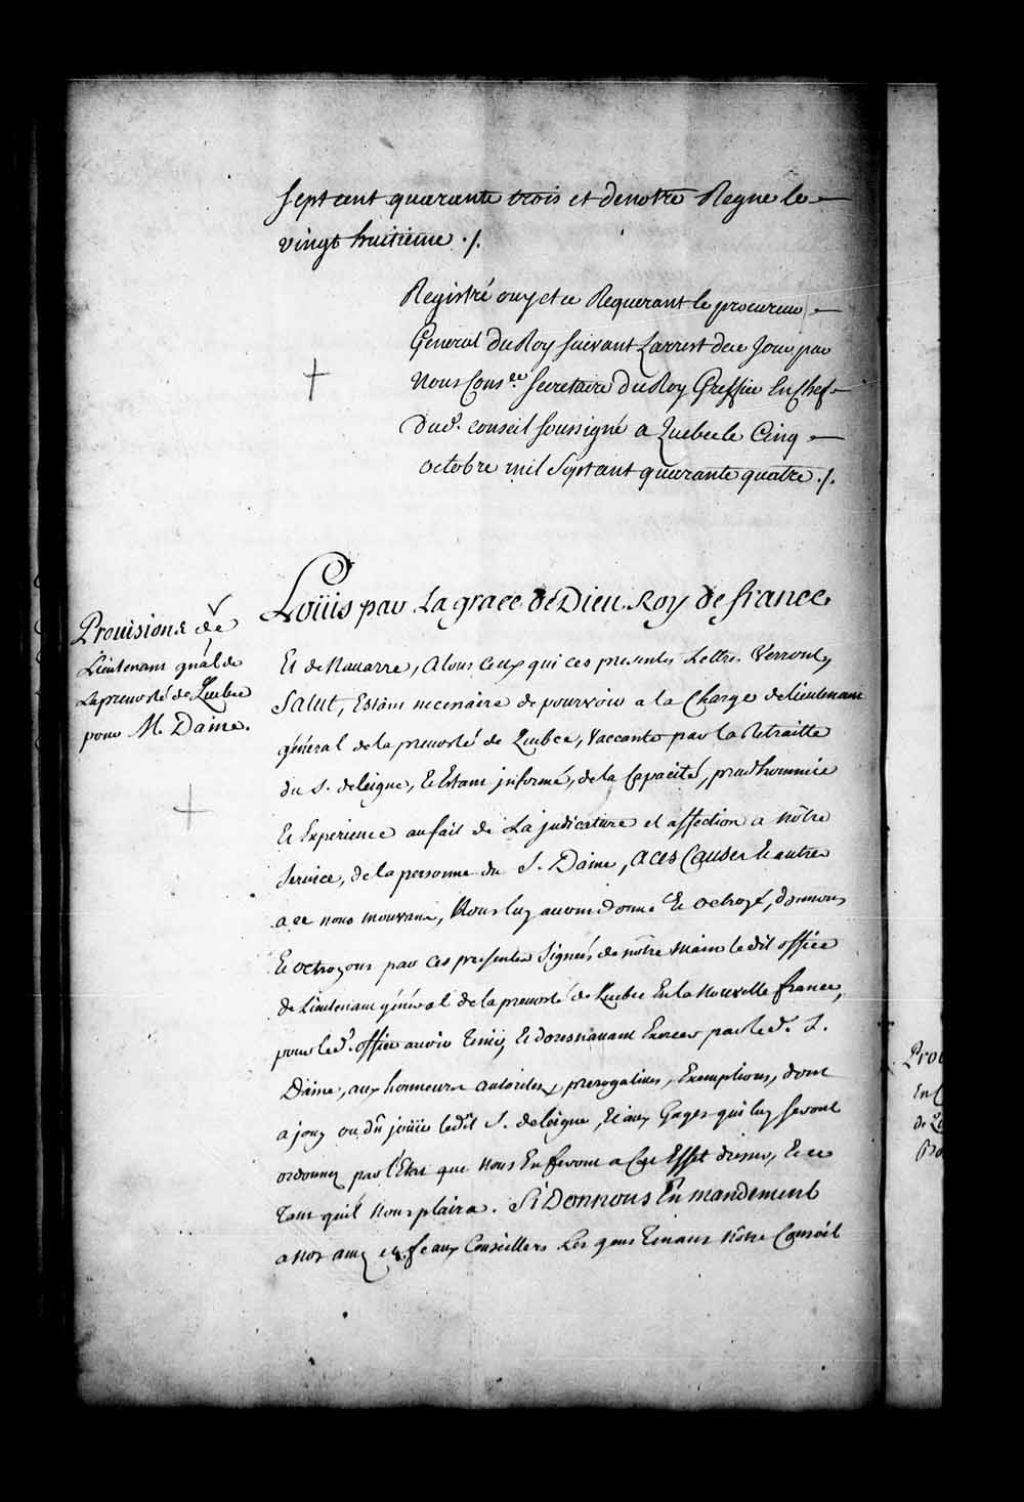 sept cent quarante trois et denotre Regne le
vingt huitieme ./.
Registré ouy et ce Requerant le procureur
General du Roy suivant Larrest de ce Jour par
Nous Cons.er Secretaire du Roy Greffier En Chef
dud. conseil soussigné a Quebec le Cinq
octobre mil Sept cent quarante quatre ./.
Prouisions de
Lieutenant gñal de
La preuosté de Quebec
pour M. Daine.
Loüis par La grace de Dieu Roy de france
Et de Nauarre, A tous Ceux qui ces presentes Lettres Verront,
Salut, Estant necessaire de pourvoir a la Charge de lieutenant
général de la preuosté de Quebec, Vaccante par la Retraitte
du S. deleigne, Et Estant jnformé, de la Cappacité, prud'hommie
Et Experience au fait de La judicature et affection a nôtre
Seruice, de la personne du S. Daine, A ces Causes Et autres
a ce nous mouvans, Nous luy auons donné Et octroyé, donnons
Et octroyons par ces presentes Signées de nôtre main ledit office
de Lieutenant général de la preuosté de Quebec En la Nouvelle france,
pour led. office auoir tenir, Et doresnauant Exercer par led. S.
Daine, aux honneurs autorités, prerogatives, Exemptions, dont
a jouy ou dû joüir ledit S. deleigne, Et aux Gages qui luy seront
ordonnez par l'Etat que nous En ferons a Cet Effet dresser, Et ce
Tant qu'il Nous plaira. Si Donnons En mandement
a nos amez et feaux Conseillers Les gens Tenans Nôtre Conseil
Pro
En
de